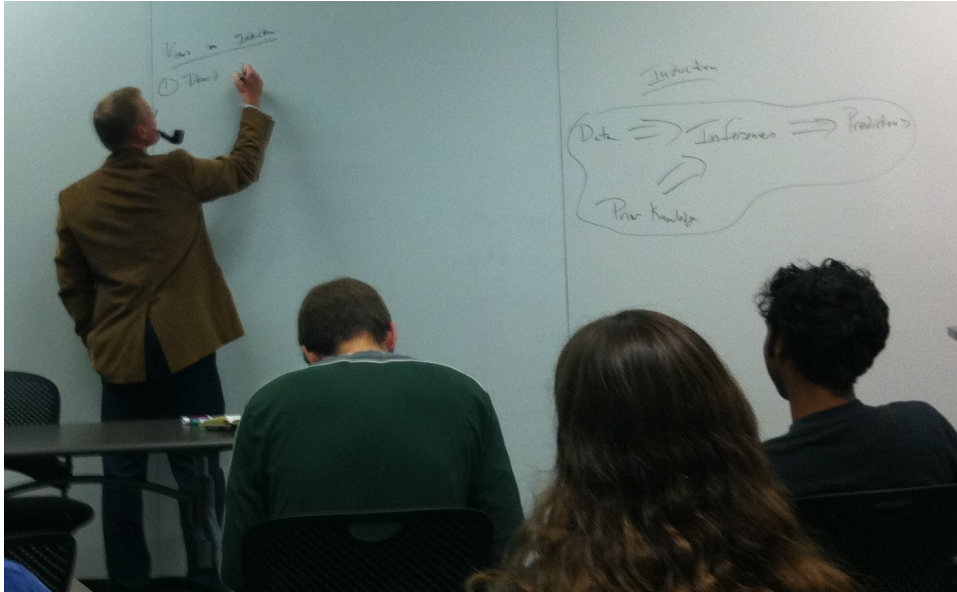 Views on Induction
① David
Induction
Data ⇒ Inferences ⇒ Predictions
Prior Knowledge